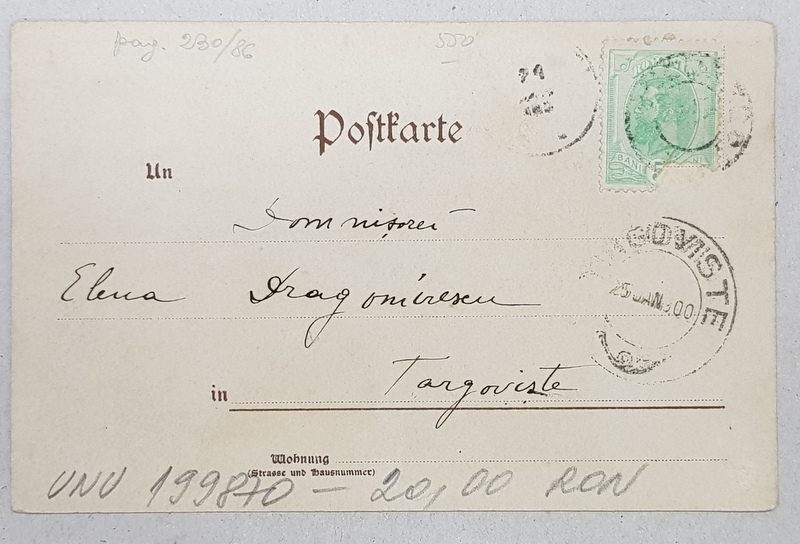 pag. 230/86
550
24
Postkarte
BANI
Un
Domnișorei
TARGOVISTE
25 JAN 900
Elena Dragomirescu
in Targoviste
Wohnung
(Strasse und Hausnummer)
UNU 199870 - 20,00 RON